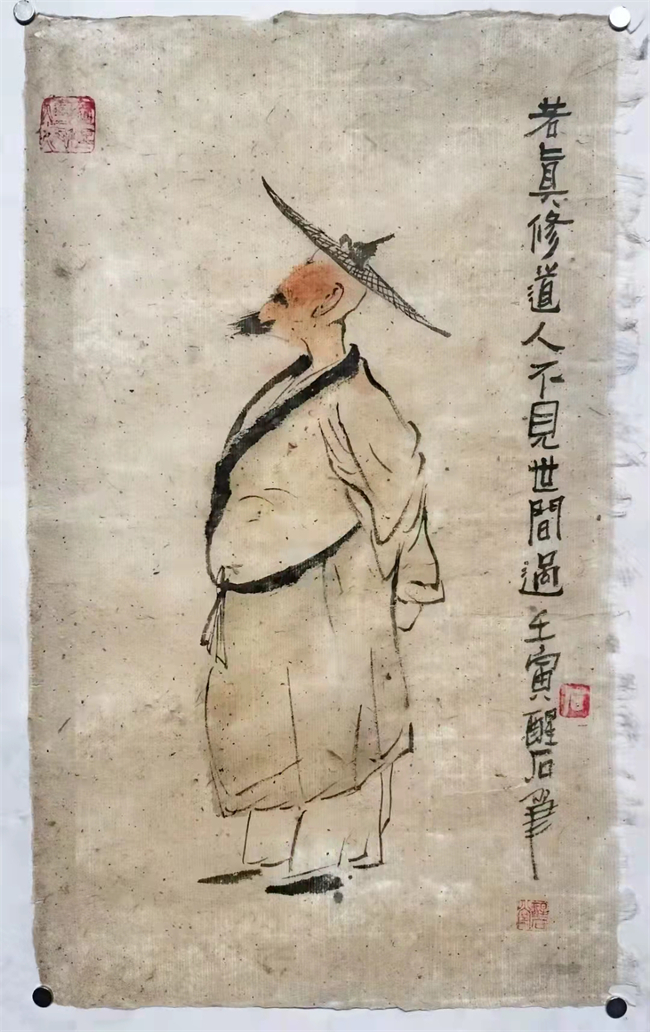 若眞修道人不見世間過壬寅醒石筆
石